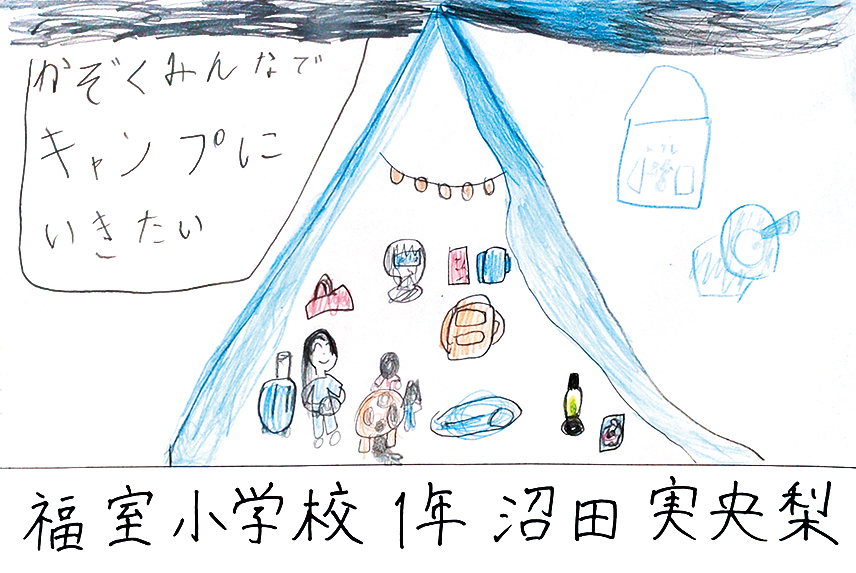 かぞくみんなで
キャンプに
いきたい
福室小学校 1年 沼田 実央梨